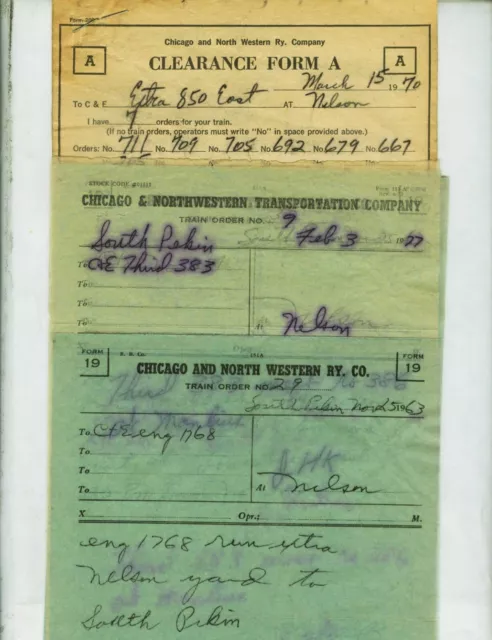 Chicago and North Western Ry. Company
A CLEARANCE FORM A A
March 15 1970
To C & E Extra 850 East AT Nelson
I have 7 orders for your train.
(If no train orders, operators must write "No" in space provided above.)
Orders: No. 711 No. 709 No. 705 No. 692 No. 679 No. 667
CHICAGO & NORTHWESTERN TRANSPORTATION COMPANY
TRAIN ORDER NO. 9
South Pekin Feb 3 1977
To C&E Third 383
To
To
To At Nelson
FORM 19 CHICAGO AND NORTH WESTERN RY. CO. FORM 19
TRAIN ORDER NO. 29
South Pekin Nov 25 1963
To C&E eng 1768
To
To
To At Nelson
X Opr.: M.
eng 1768 run extra
Nelson yard to
South Pekin